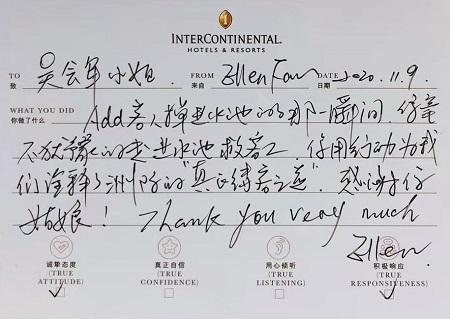 INTERCONTINENTAL
HOTELS & RESORTS
TO 致 吴会军小姐 FROM 来自 Ellen DATE 日期 2020.11.9.
WHAT YOU DID
你做了什么
Add 客人掉进水池的那一瞬间,你毫
不犹豫的走进水池救客人 你用行动为我
们诠释了洲际的"真正待客之道" 感谢你
姑娘! Thank you very much
Ellen
诚挚态度 真正自信 用心倾听 积极响应
(TRUE (TRUE (TRUE (TRUE
ATTITUDE) CONFIDENCE) LISTENING) RESPONSIVENESS)